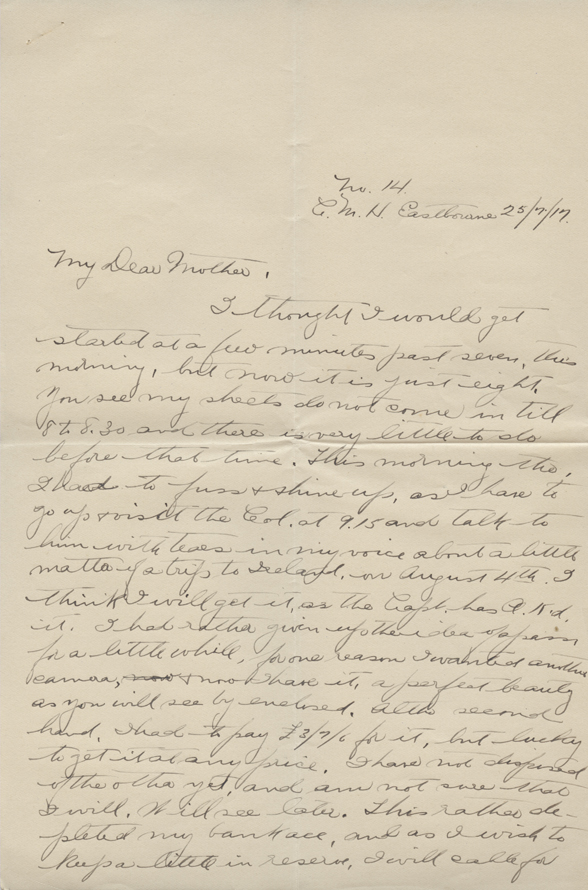 No. 14.
C. M. H. Eastbourne 25/7/17.
My Dear Mother,
I thought I would get
started at a few minutes past seven, this
morning, but now it is just eight.
You see my sheets do not come in till
8 t. 8.30 and there is very little to do
before that time. This morning tho,
I had to fuss & shine up, as I have to
go up & visit the Col. at 9.15 and talk to
him with tears in my voice about a little
matter of a trip to Ireland, on August 4th. I
think I will get it, as the Capt. has O.K'd.
it. I had rather given up the idea of
for a little while, for one reason I wanted another
camera, now & now I have it, a perfect beauty
as you will see by enclosed. Altho second
hand, I had to pay £3/7/6 for it, but lucky
to get it at any price. I have not disposed
of the other yet, and am not sure that
I will. Will see later. This rather de-
pleted my bank acc, and as I wish to
keep a little in reserve, I will cable for